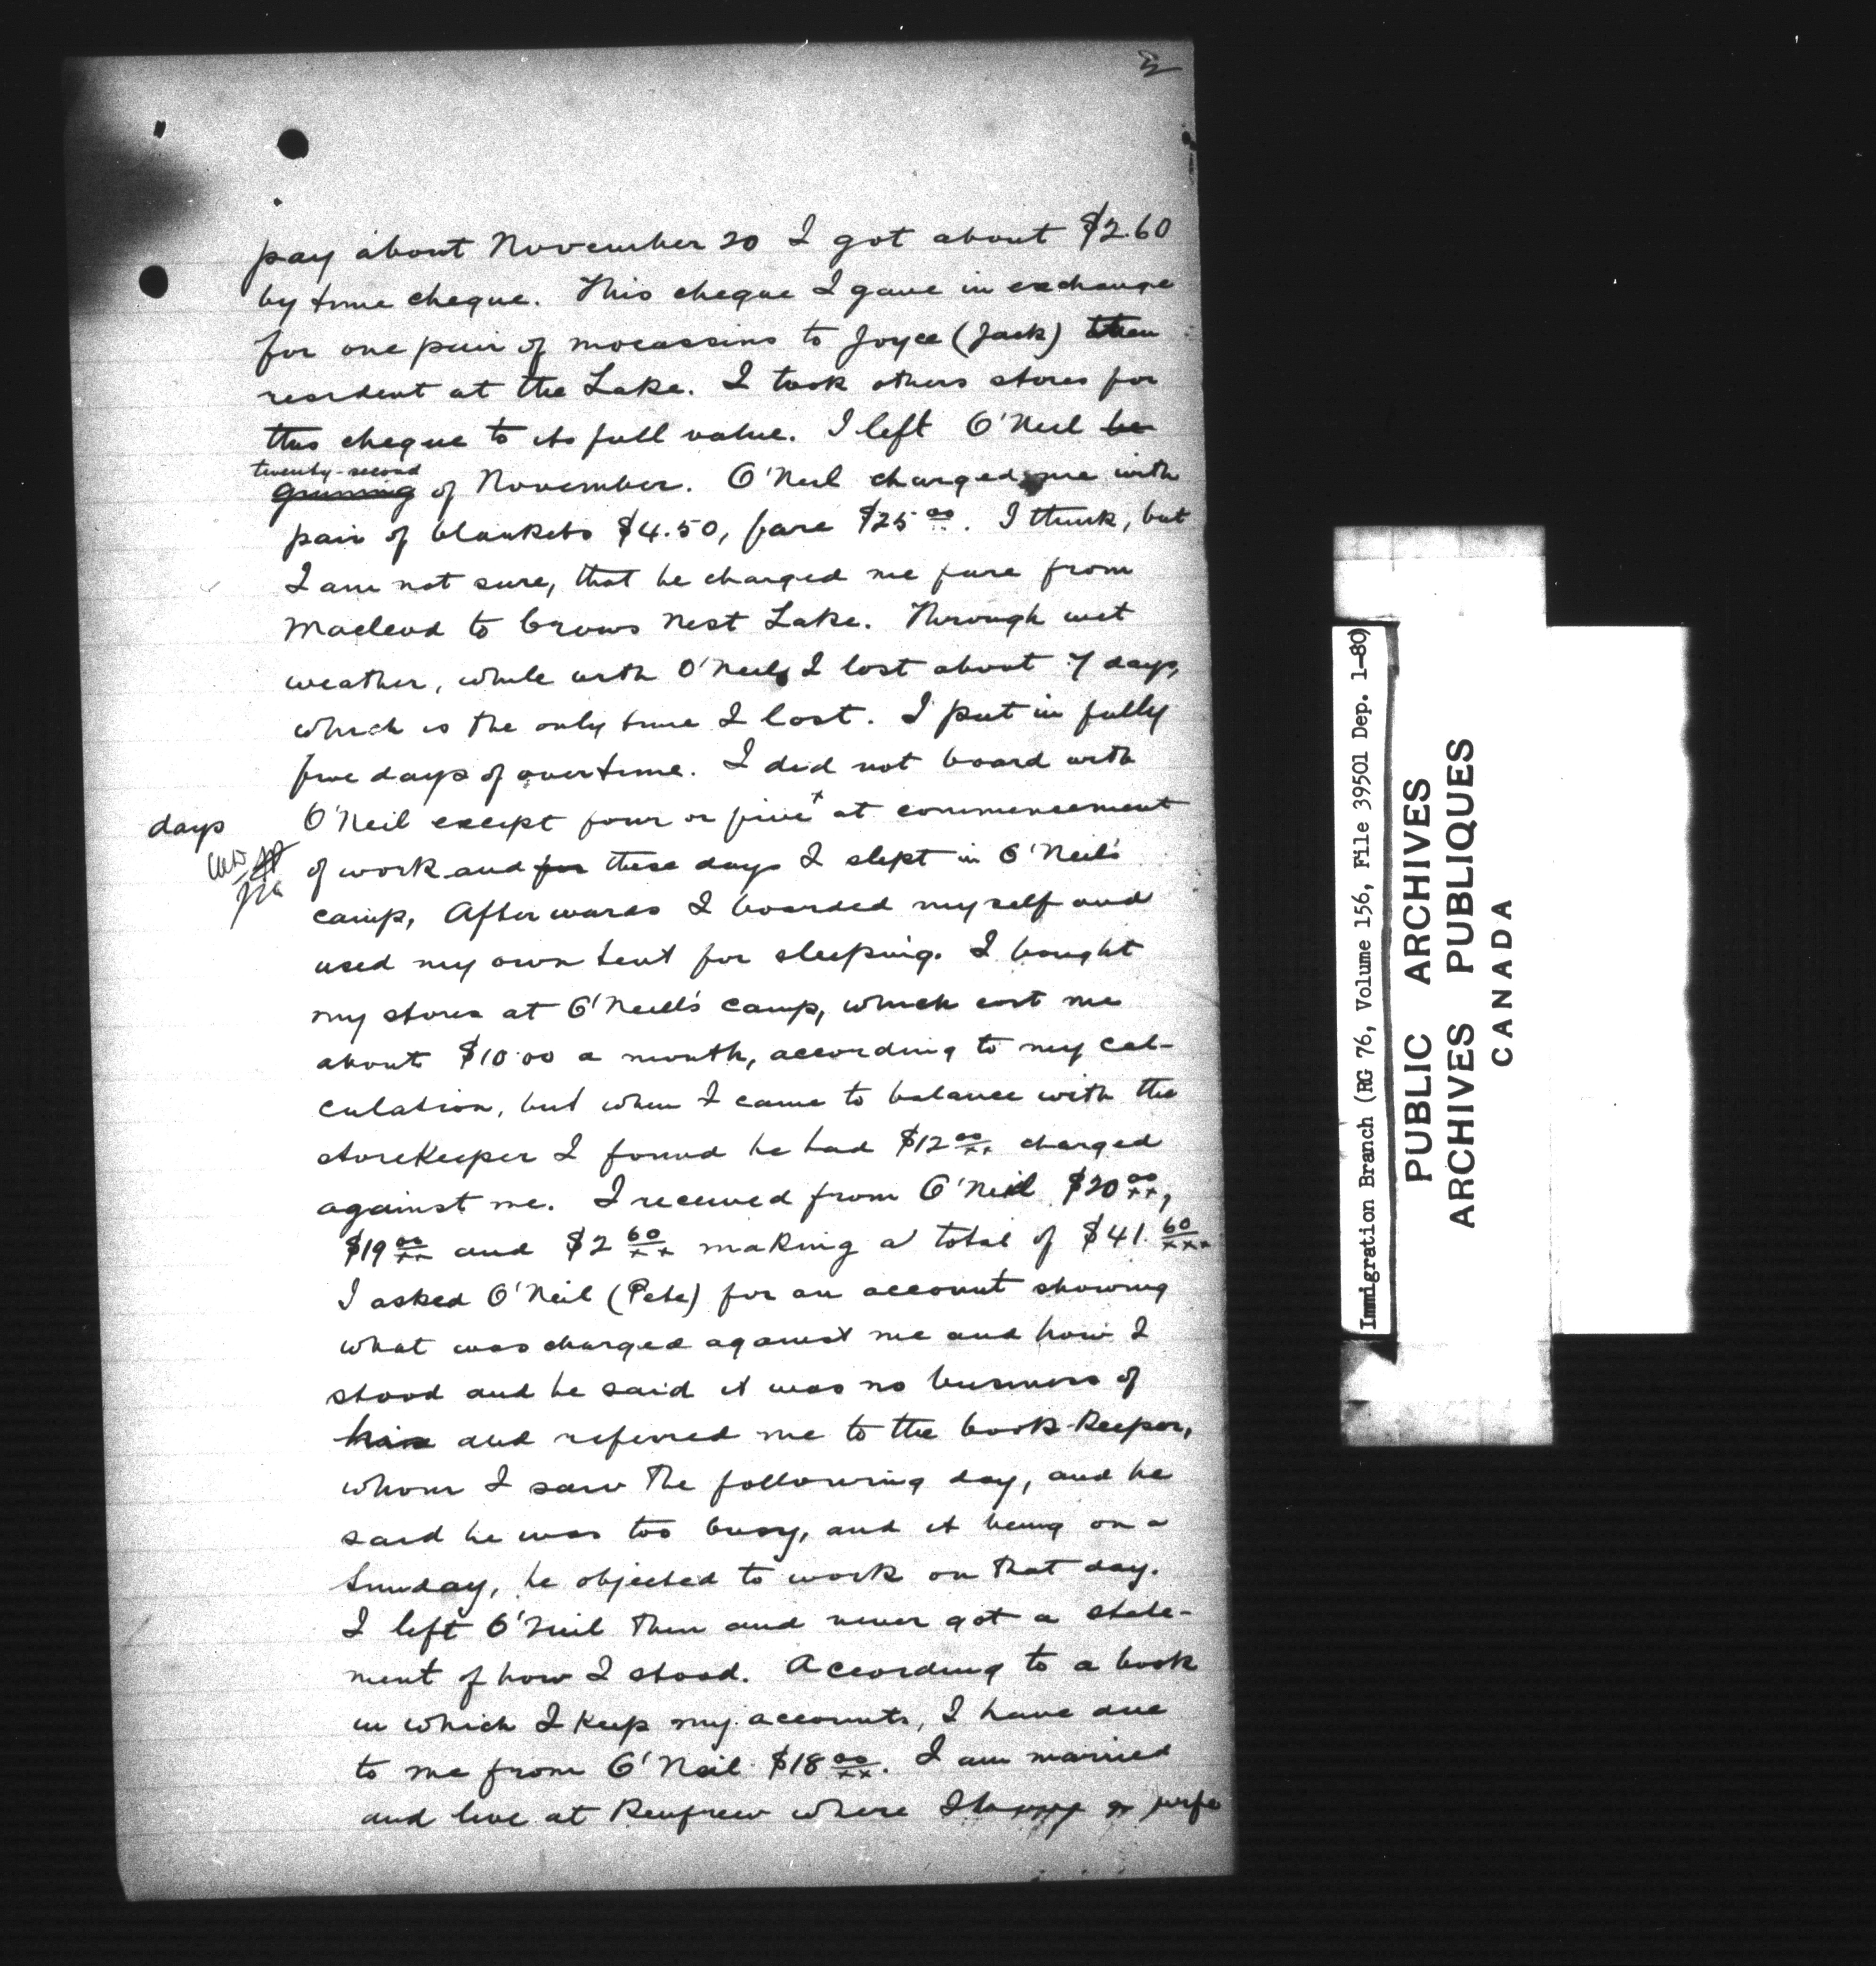 pay about November 20 I got about $2.60
by time cheque. This cheque I gave in exchange
for one pair of mocassins to Joyce (Jack) then
resident at the Lake. I took others stores for
this cheque to its full value. I left O'Neil be
twenty-second
of November. O'Neil charged me with
pair of blankets $4.50, fare $25 00. I think, but
I am not sure, that he charged me fare from
Macleod to Crows Nest Lake. Through wet
weather, while with O'Neil, I lost about 7 days,
which is the only time I lost. I put in fully
five days of overtime. I did not board with
days
O'Neil except four or five x at commencement
of work and for these days I slept in O'Neil's
camp, Afterwards I boarded myself and
used my own tent for sleeping. I bought
my stores at O'Neill's camp, which cost me
about $10.00 a month, according to my cal-
culation, but when I came to balance with the
storekeeper I found he had $12 00/xx charged
against me. I received from O'Neil $20 00/xx,
$19 00/xx and $2 60/xx making a total of $41. 60/xxx
I asked O'Neil (Pete) for an account showing
what was charged against me and how I
stood and he said it was no business of
his and referred me to the book-keeper,
whom I saw the following day, and he
said he was too busy, and it being on a
Sunday, he objected to work on that day.
I left O'Neil then and never got a state-
ment of how I stood. According to a book
in which I keep my accounts, I have due
to me from O'Neil $18 00/xx. I am married
and live at Renfrew where I wife
Immigration Branch (RG 76, Volume 156, File 39501 Dep. 1-80)
PUBLIC ARCHIVES
ARCHIVES PUBLIQUES
CANADA